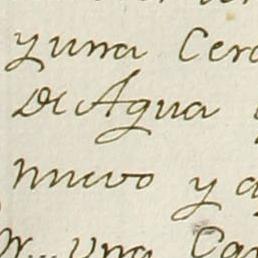 y una Cer
De Agua
nuevo y a
Una Ca